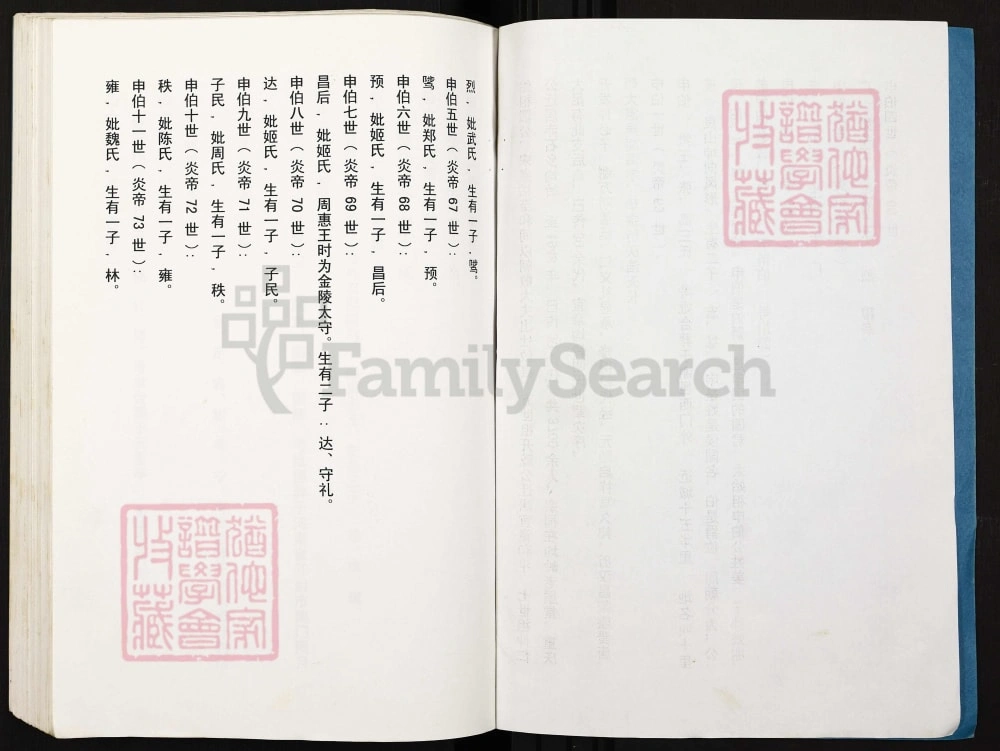 烈，妣武氏，生有一子，鹭。
申伯五世（炎帝 67 世）：
鹭，妣郑氏，生有一子，预。
申伯六世（炎帝 68 世）：
预，妣姬氏，生有一子，昌后。
申伯七世（炎帝 69 世）：
昌后，妣姬氏，周惠王时为金陵太守。生有二子：达、守礼。
申伯八世（炎帝 70 世）：
达，妣姬氏，生有一子，子民。
申伯九世（炎帝 71 世）：
子民，妣周氏，生有一子，秩。
申伯十世（炎帝 72 世）：
秩，妣陈氏，生有一子，雍。
申伯十一世（炎帝 73 世）：
雍，妣魏氏，生有一子，林。
FamilySearch
譜學會
收藏
譜學會
收藏